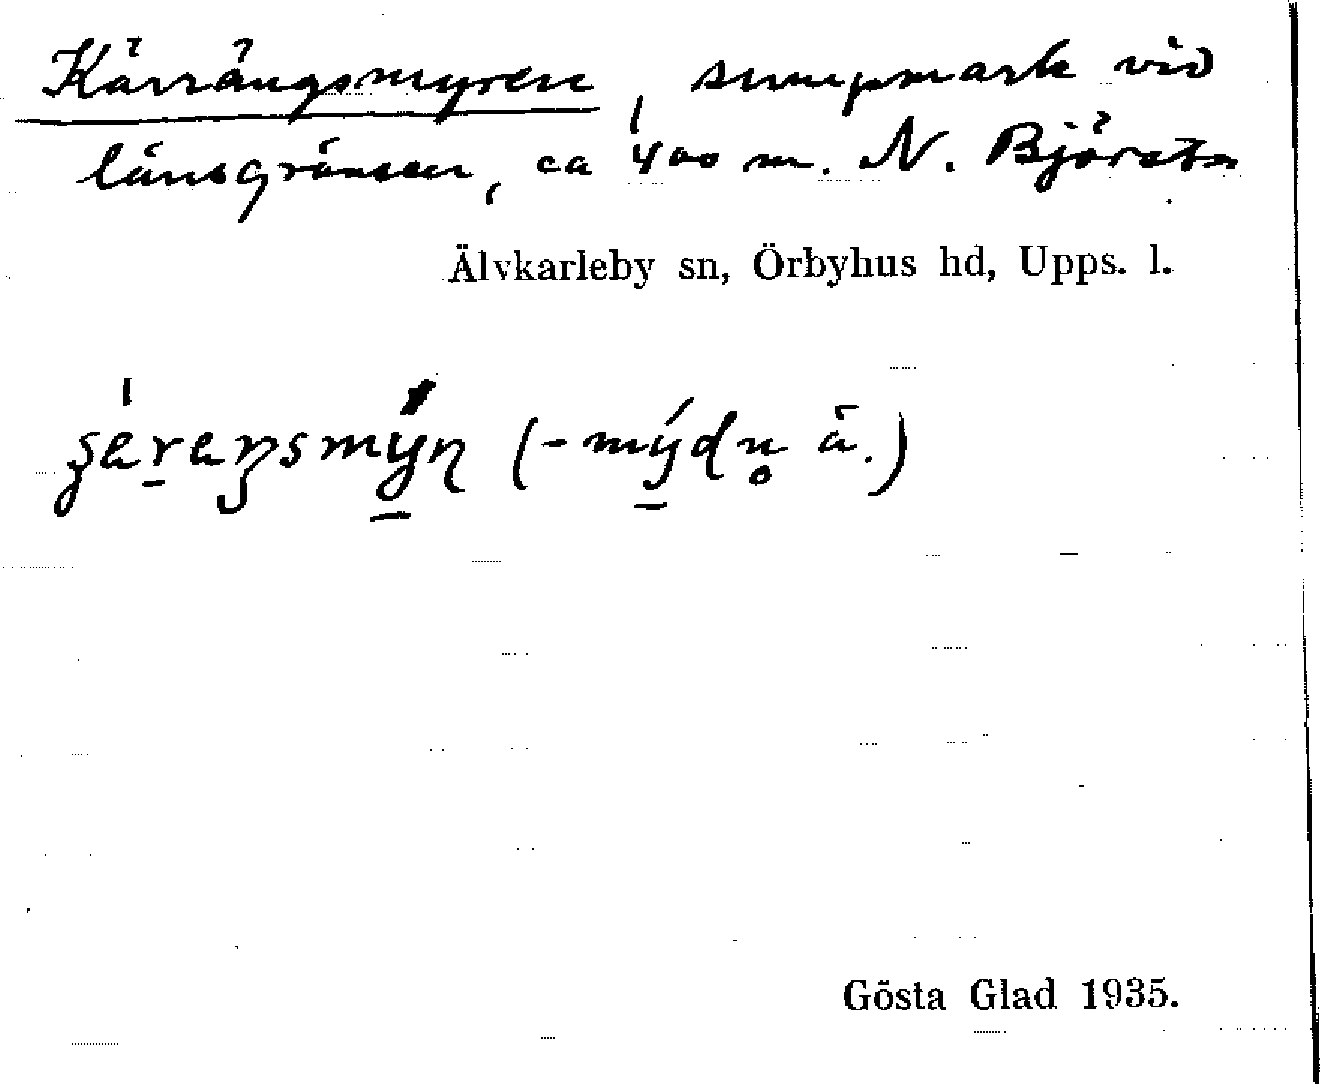 Kärrängsmyren, sumpmark vid
länsgränsen, ca 400 m. N. Björsta
Älvkarleby sn, Örbyhus hd, Upps. l.
(-mýdn̥ ä.)
Gösta Glad 1935.